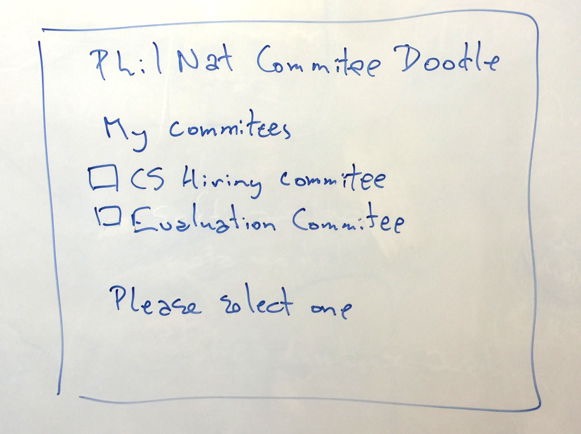 Phil Nat Commitee Doodle
My commitees
CS Hiring commitee
Evaluation Commitee
Please select one